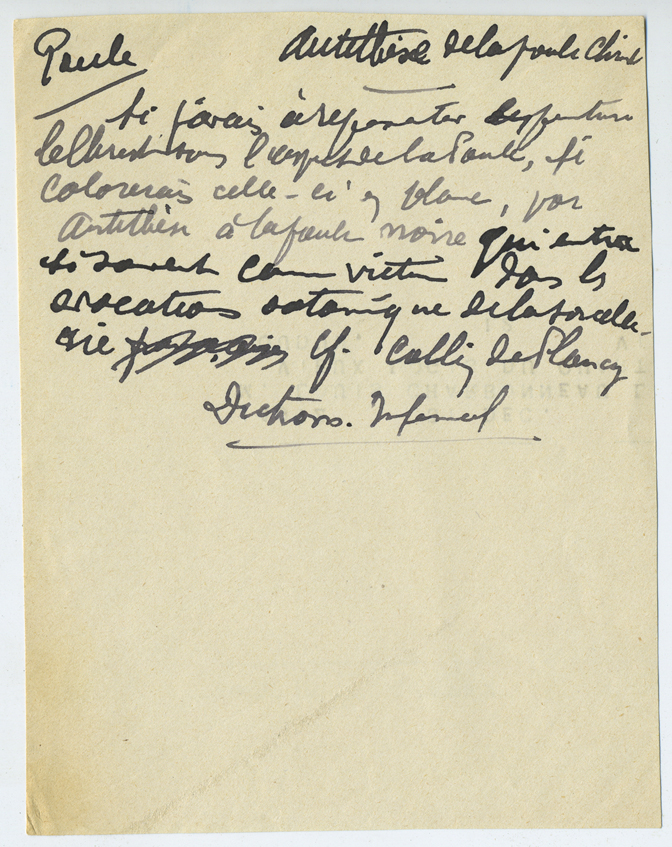 Poule
Antithèse de la poule Christ
Si j'avais à représenter en peinture
le Christ sous l'aspect de la Poule, je
colorerais celle-ci en blanc, par
Antithèse à la poule noire qui entra
si souvent comme victime dans les
évocations sataniques de la sorcelle-
rie Cf. Collin de Plancy
Dictionn. Infernal